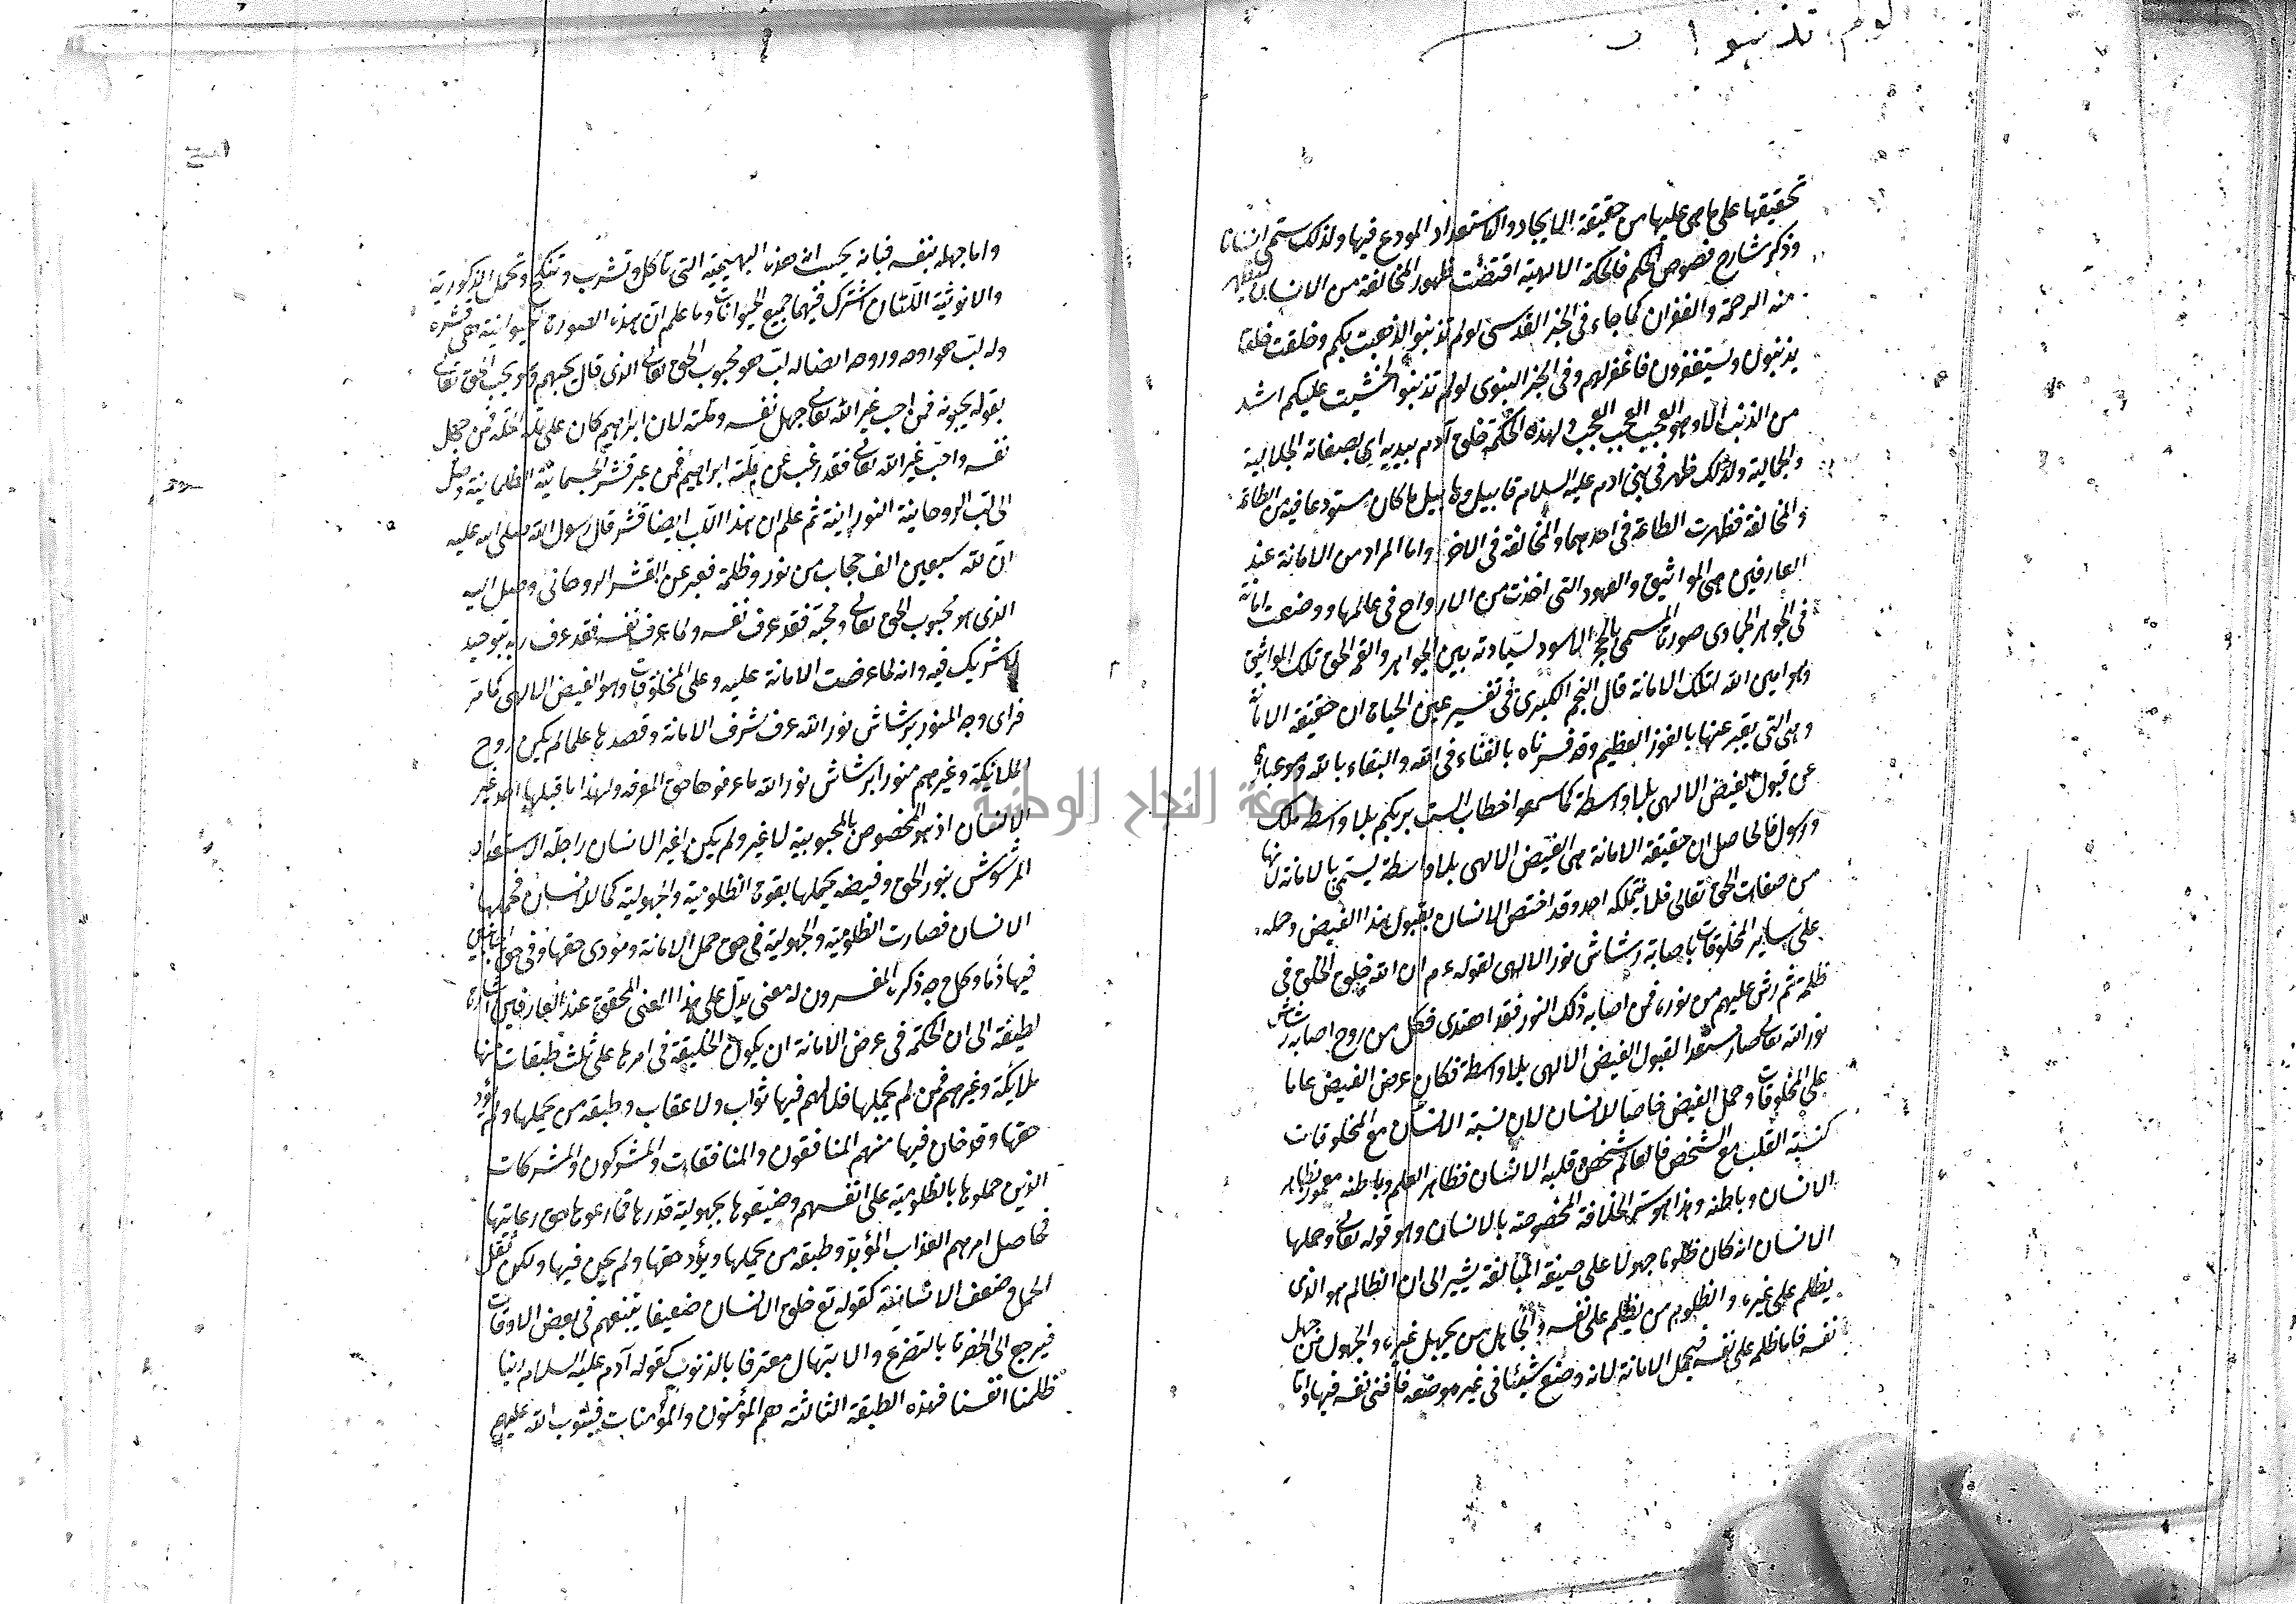 لولم تذنبوا
تحقيقها على ما هى عليها من حقيقة الايجاد والاستعداد المودع فيها ولذلك ستمى انسانا
وذكر شارح فصوص الحكم فالحكمة الالهية اقتضت ظهور المخالفة من الانسان ليظهر
منه الرحمة والغفران كما جاء فى الخبر القدسى لولم تذنبوا لذهبت بكم وخلقت خلقا
يذنبون ويستغفرون فاغفر لهم وفى الخبر النبوى لولم تذنبوا لخشيت عليكم اشد
من الذنب الا وهو العجب العجب العجب ولهذه الحكمة خلق آدم بيديه اى بصفاته الجلالية
والجمالية ولذلك ظهر فى بنى ادم عليه السلام قابيل وهابيل ما كان مستودعا فيه من الطاعة
والمخالفة فظهرت الطاعة فى احدهما والمخالفة فى الاخر واما المراد من الامانة عند
العارفين هى المواثيق والعهود التى اخذت من الارواح فى عالمها ووضعت امانة
فى الجوهر الجمادى صورتا المسمى بالحجر الاسود لسيادته بين الجواهر والقمه الحق تلك المواثيق
وهو امين الله لتلك الامانة قال النجم الكبرى فى تفسير عين الحياة ان حقيقة الامانة
وهى التى يعبر عنها بالفوز العظيم وقد فسرناه بالفناء فى الله والبقاء بالله وهو عبارة
عن قبول الفيض الالهى بلا واسطة كما سمعوا خطاب الست بربكم بلا واسطة ملك
ورسول فالحاصل ان حقيقة الامانة هى الفيض الالهى بلا واسطة ليستمى بالامانة لانها
من صفات الحق تعالى فلا يتملكه احد وقد اختص الانسان بقبول هذا الفيض وحمله
على ساير المخلوقات باصابة رشاش نور الالهى لقوله ءم ان الله خلق الخلق فى
ظلمة ثم رش عليهم من نوره فمن اصابه ذلك النور فقد اهتدى فكل من روح اصابه رشاش
نور الله تعالى صار مستعدا لقبول الفيض الالهى بلا واسطة فكان عرض الفيض عاما
على المخلوقات وحمل الفيض خاصا للانسان لان نسبة الانسان مع المخلوقات
كنسبة القلب مع الشخص فالعالم شخص وقلبه الانسان فظاهر العلم وباطنه معمور بظاهر
الانسان وباطنه وهذا هو سر الخلافة المخصوصة بالانسان وهو قوله تعالى وحملها
الانسان انه كان ظلوما جهولا على صيغة المبالغة يشير الى ان الظالم هو الذى
يظلم على غيره والظلوم من يظلم على نفسه والجاهل من يجهل غيره والجهول من جهل
نفسه فاما ظلمه على نفسه فيحمل الامانة لانه وضع شيئا فى غير موضعه فافنى نفسه فيها واما
واما جهله بنفسه فبانه يحسب انه هذه البهيمية التى تاكل وتشرب وتنكح وتحمل الذكورية
والانوثية اللتان اشترك فيهما جميع الحيوانات وما علم ان هذه الصورة الحيوانية هى قشره
وله لب هو روحه وروحه ايضا له لب هو محبوب الحق تعالى الذى قال يحبهم وهو يحب الحق تعالى
بقوله يحبونه فمن احب غير الله تعالى جهل نفسه وظلمه لان ابراهيم كان على ملة الخلة فمن جهل
نفسه واحب غير الله تعالى فقد رغب عن ملة ابراهيم فمن عبر قشر الجسمانية الظلمانية وصل
الى لب الروحانية النورانية ثم علم ان هذا اللب ايضا قشر قال رسول الله صلى الله عليه
ان لله سبعين الف حجاب من نور وظلمة فعبر عن القشر الروحانى وصل اليه
الذى هو محبوب الحق تعالى ومحبه فقد عرف نفسه ولما عرف نفسه فقد عرف ربه بتوحيد
لا شريك فيه وانه لما عرضت الامانة عليه وعلى المخلوقات وهو الفيض الالهى كما مر
فراى وجه المنور برشاش نور الله عرف شرف الامانة وقصدها علما لم يكن روح
الملائكة وغيرهم منورا برشاش نور الله ما عرفوها حق المعرفة ولهذا ما قبلها احد غير
الانسان اذ هو المخصوص بالمحبوبية لا غير ولم يكن لغير الانسان راجلة الاستعداد
المرشوش بنور الحق وفيضه يحملها بقوة الظلومية والجهولية كما للانسان فحملها
الانسان فصارت الظلومية والجهولية فى حق حمل الامانة ومؤدى حقها وفى حق الخائنين
فيها ذما وكل وجه ذكره المفسرون له معنى يدل على هذا المعنى المحقق عند العارفين اشارة
لطيفة الى ان الحكمة فى عرض الامانة ان يكون الخليقة فى امرها على ثلث طبقات منها
ملايكة وغيرهم فمن لم يحملها فلا لهم فيها ثواب ولا عقاب وطبقه من يحملها ولم يؤد
حقها وقد خان فيها منهم المنافقون والمنافقات والمشركون والمشركات
الذين حملوها بالظلومية على انفسهم وضيعوها بجهولية قدرها فما رعوها حق رعايتها
فحاصل امرهم العذاب المؤبد وطبقه من يحملها ويؤد حقها ولم يخن فيها ولكن لثقل
الحمل وضعف الانسانية كقوله تع خلق الانسان ضعيفا يتبعهم فى بعض الاوقات
فيرجع الى الحضرة بالتضرع والابتهال معترفا بالذنوب كقوله آدم عليه السلام ربنا
ظلمنا انفسنا فهذه الطبقة الثالثة هم المؤمنون والمؤمنات فيتوب الله عليهم
جامعة النجاح الوطنية